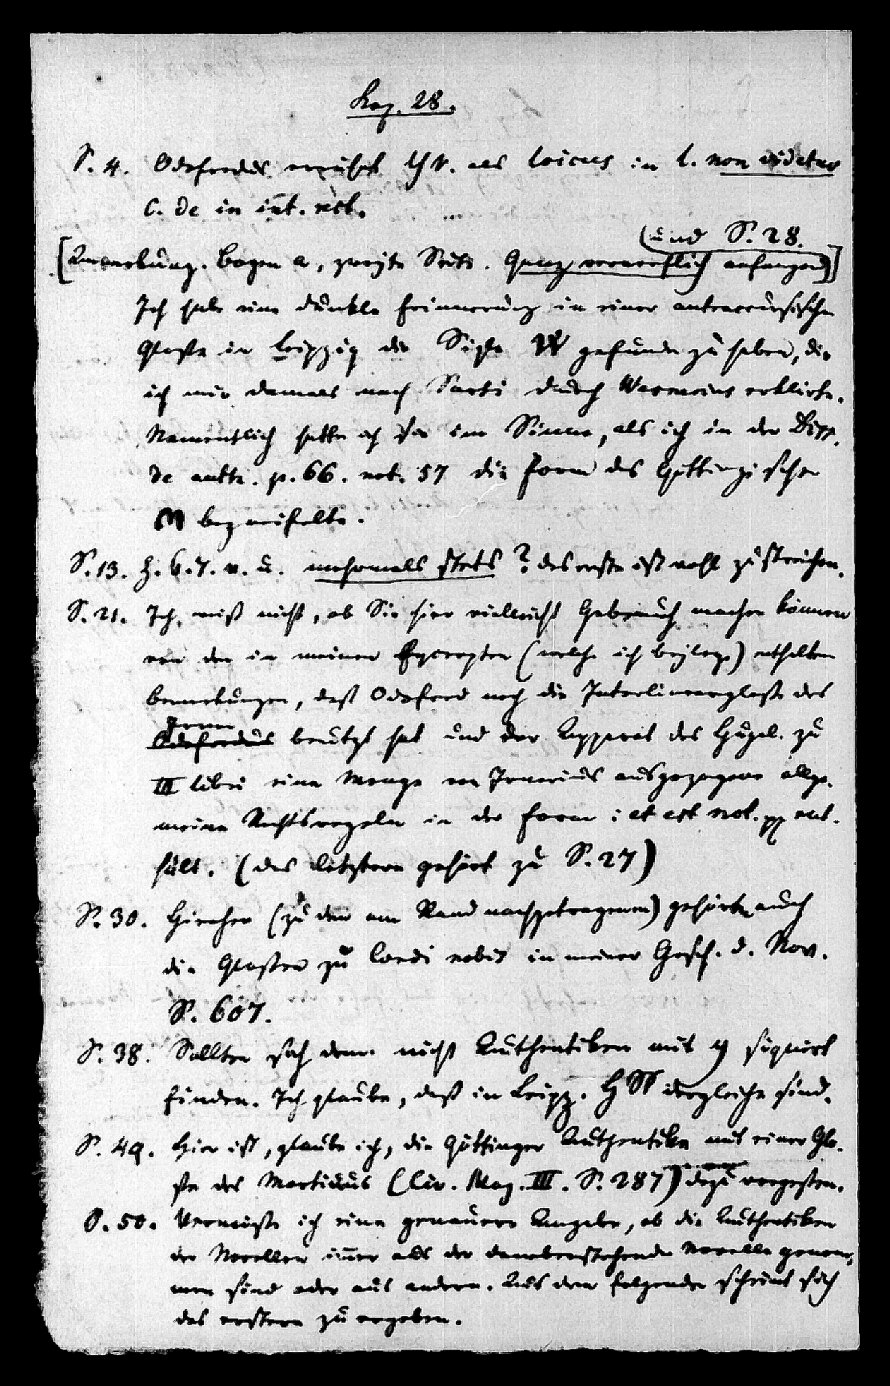 Kap. 28.
S. 4. Odofredus erwähnt Yr. als loicus in l. non videtur
C. de in int. rest.
(und S. 28.
[Anmerkung. Bogen a, zweyte Seite. Ganz verwerflich anfangend)]
Ich habe eine dunkle Erinnerung in einer antraccursischen
Glosse in Leipzig die Sigle W gefunden zu haben, die
ich mir damals nach Sarti durch Warnerius erklärte.
Namentlich hatte ich sie im Sinne, als ich in der Diss.
de auth. p. 66. not. 57 die Form des Göttingischen
M bezweifelte.
S. 13. Z. 6. 7. v. u. mehrmals stets? das erste ist wohl zu streichen.
S. 21. Ich weiß nicht, ob Sie hier vielleicht Gebrauch machen können
von der in meinen Excerpten (welche ich beylege) enthaltenen
Bemerkungen, daß Odofred noch die Interlinearglosse des
Irner
Odofredus benützt hat und der Apparat des Hugol. zu
III libri eine Menge von Irnerius ausgezogene allge-
meine Rechtsregeln in der Form: et est not. pp ent-
hält. (das letztere gehört zu S. 27)
S. 30. Hierher (zu den am Rand nachgetragenen) gehörte auch
die Glossen zu Cordi nobis in meiner Gesch. d. Nov.
S. 607.
S. 38. Sollten sich denn nicht Authentiken mit y signirt
finden. Ich glaube, daß in Leipz. HSS dergleichen sind.
S. 49. Hier ist, glaube ich, die Göttinger Authentike mit einer Glo-
sse des Martinus (Civ. Mag. III. S. 287) dazu vergessen.
S. 50. Vermißte ich eine genauere Angabe, ob die Authentiken
der Novellen immer aus der danebenstehenden Novelle genom-
men sind oder aus andern. Aus dem folgenden scheint sich
das erstere zu ergeben.